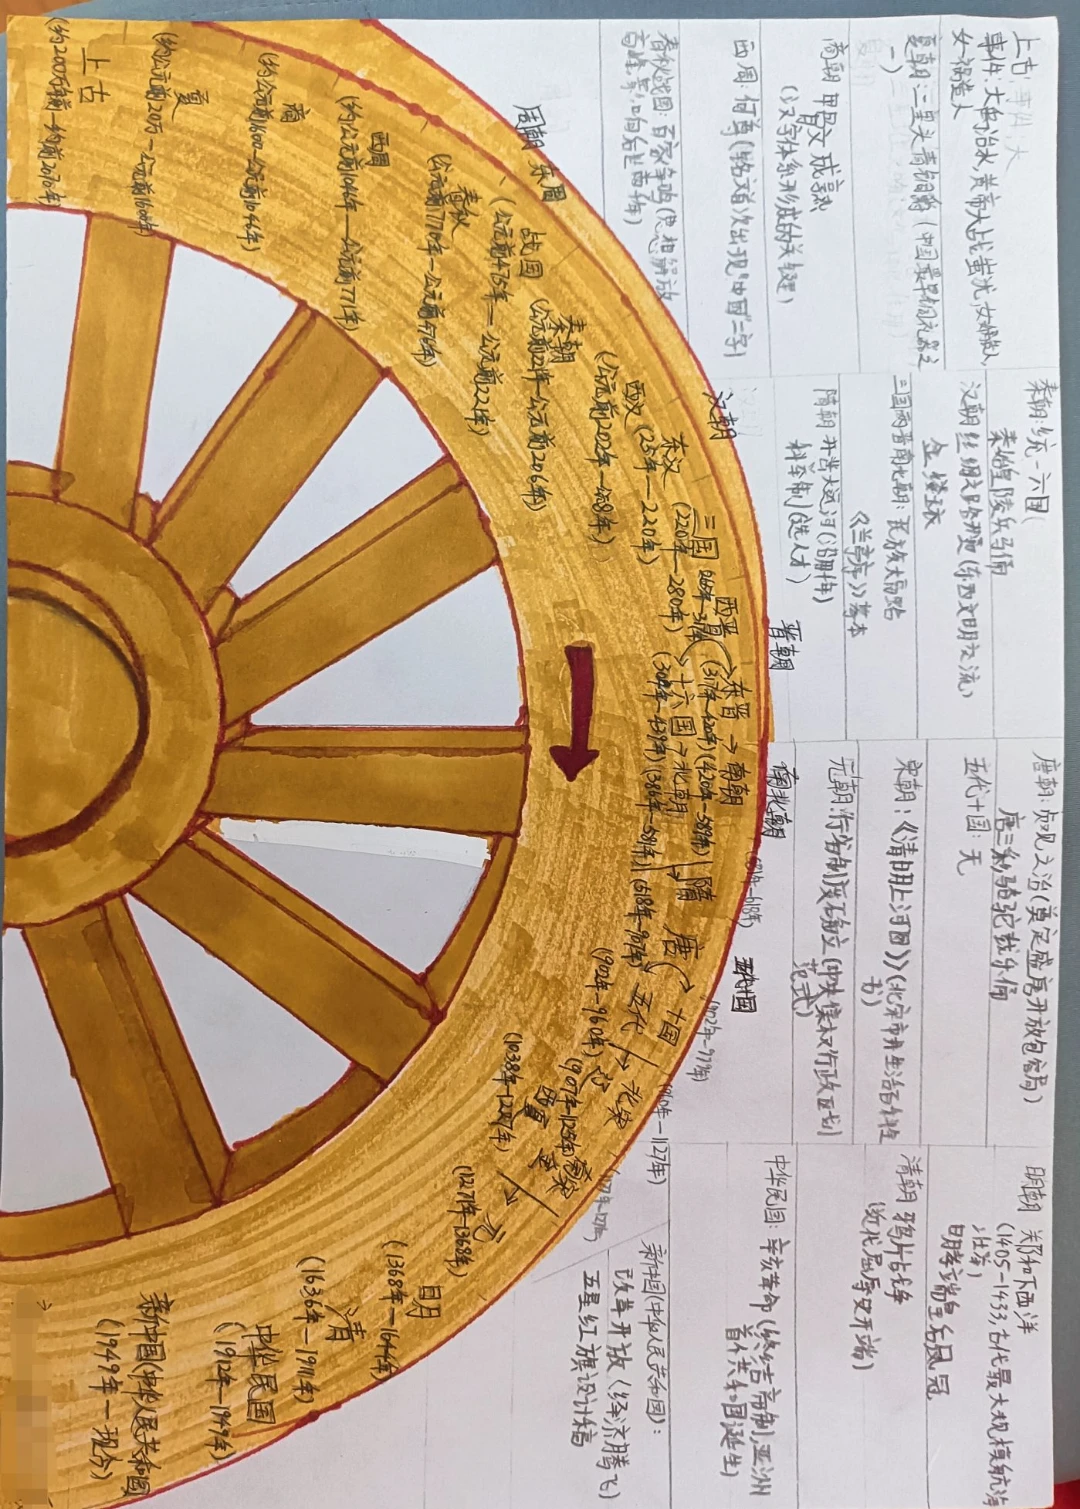 上古:
事件:大禹治水,黄帝大战蚩尤,女娲造人
女娲造人
夏朝:二里头青铜爵(中国最早的礼器之一)
商朝 甲骨文成熟
(汉字体系形成的关键)
西周:何尊(铭文首次出现“中国”二字)
春秋战国:百家争鸣(思想解放
高峰,影响后世两千年)
秦朝:统一六国
秦始皇陵兵马俑
汉朝 丝绸之路开通(东西文明交流)
金缕玉衣
三国两晋南北朝:民族大融合
《兰亭序》摹本
隋朝 开凿大运河
科举制(选人才)
唐朝:贞观之治(奠定盛唐开放包容局)
唐三彩骆驼载乐俑
五代十国:无
宋朝:《清明上河图》(北宋市井生活百科全书)
元朝:行省制度确立(中央集权行政区划
范式)
明朝 郑和下西洋
(1405-1433,古代最大规模航海
壮举)
明孝端皇后凤冠
清朝 鸦片战争
(近代屈辱史开端)
中华民国:辛亥革命(终结帝制,亚洲
首个共和国诞生)
新中国(中华人民共和国):
改革开放(经济腾飞)
五星红旗设计稿
上古
(约200万年前一约前2070年)
夏
商
(约公元前1600一公元前1046年)
西周
(约公元前1046年一公元前771年)
周朝 东周
春秋
(公元前770年一公元前476年)
战国
(公元前475年一公元前221年)
秦朝
(公元前221年一公元前206年)
汉朝
西汉
东汉
(25年一220年)
三国
(220年一280年)
晋朝
西晋
东晋
(317年-420年)
十六国
(304年-439年)
南北朝
南朝
(420年-589年)
北朝
(386年-581年)
隋
(581年-618年)
唐
(618年-907年)
五代十国
五代
十国
北宋
(960年-1127年)
(907年-1125年)
西夏
(1038年-1227年)
南宋
元
(1271年-1368年)
明
(1368年一1644年)
清
(1636年一1911年)
中华民国
(1912年一1949年)
新中国(中华人民共和国)
(1949年一现今)